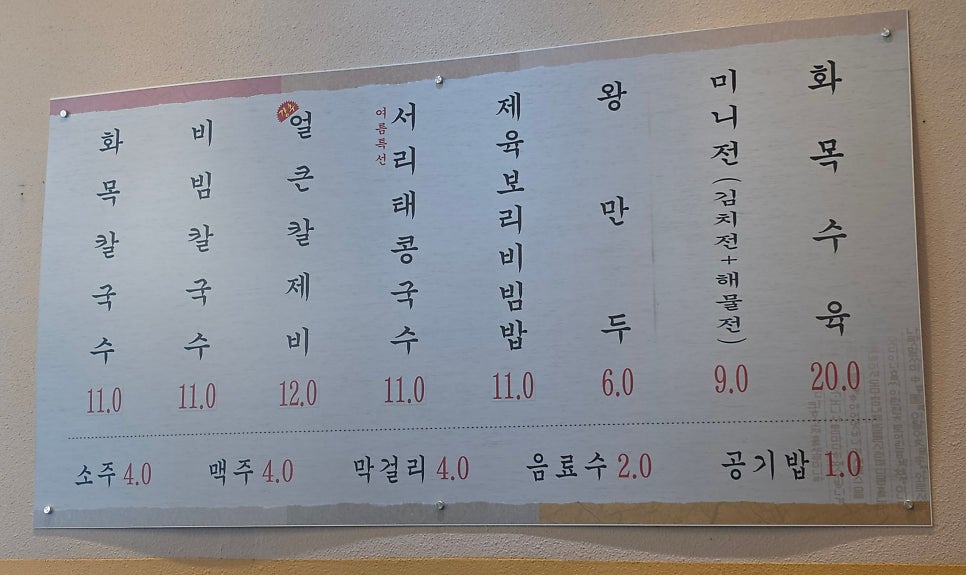 화목칼국수 11.0
비빔칼국수 11.0
얼큰칼제비 12.0
여름특선
서리태콩국수 11.0
제육보리비빔밥 11.0
왕만두 6.0
미니전(김치전+해물전) 9.0
화목수육 20.0
소주 4.0 맥주 4.0 막걸리 4.0 음료수 2.0 공기밥 1.0